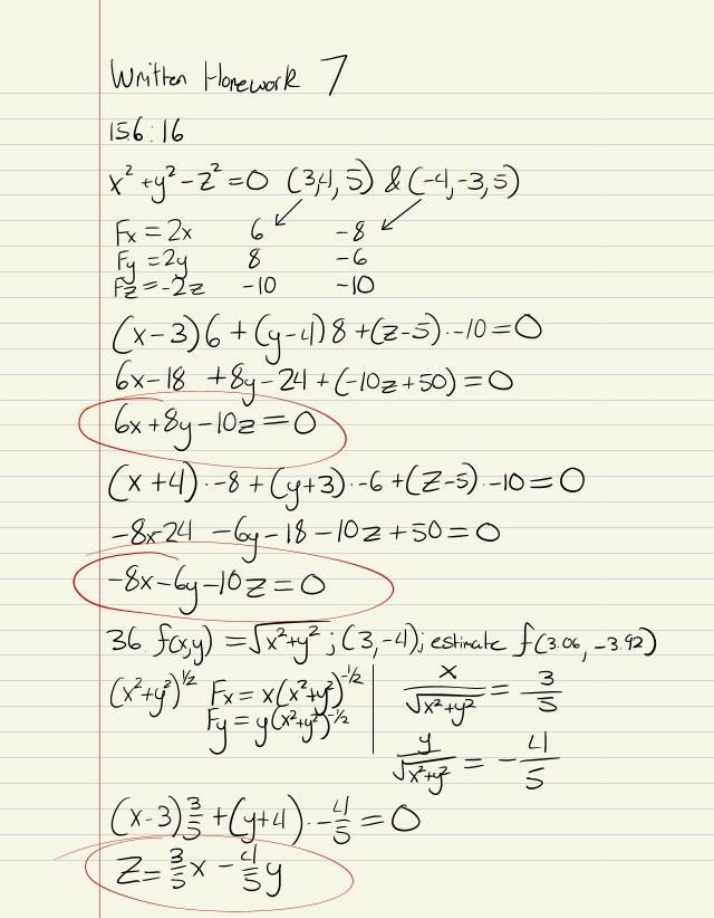 Written Homework 7
15.6:16
x² + y² - z² = 0 (3,4,5) & (-4,-3,5)
Fx = 2x 6 -8
Fy = 2y 8 -6
Fz = -2z -10 -10
(x-3)6 + (y-4)8 + (z-5)·-10 = 0
6x-18 +8y-24+(-10z+50) = 0
6x+8y-10z = 0
(x+4)·-8 + (y+3)·-6 + (z-5)·-10 = 0
-8x-24 -6y-18-10z+50 = 0
-8x-6y-10z = 0
36. f(x,y) = √x²+y² ; (3,-4); estimate f(3.06, -3.92)
(x²+y²)^1/2 Fx = x(x²+y²)^-1/2 | x/√x²+y² = 3/5
Fy = y(x²+y²)^-1/2 | y/√x²+y² = -4/5
(x-3)3/5 + (y+4)·-4/5 = 0
z = 3/5x - 4/5y